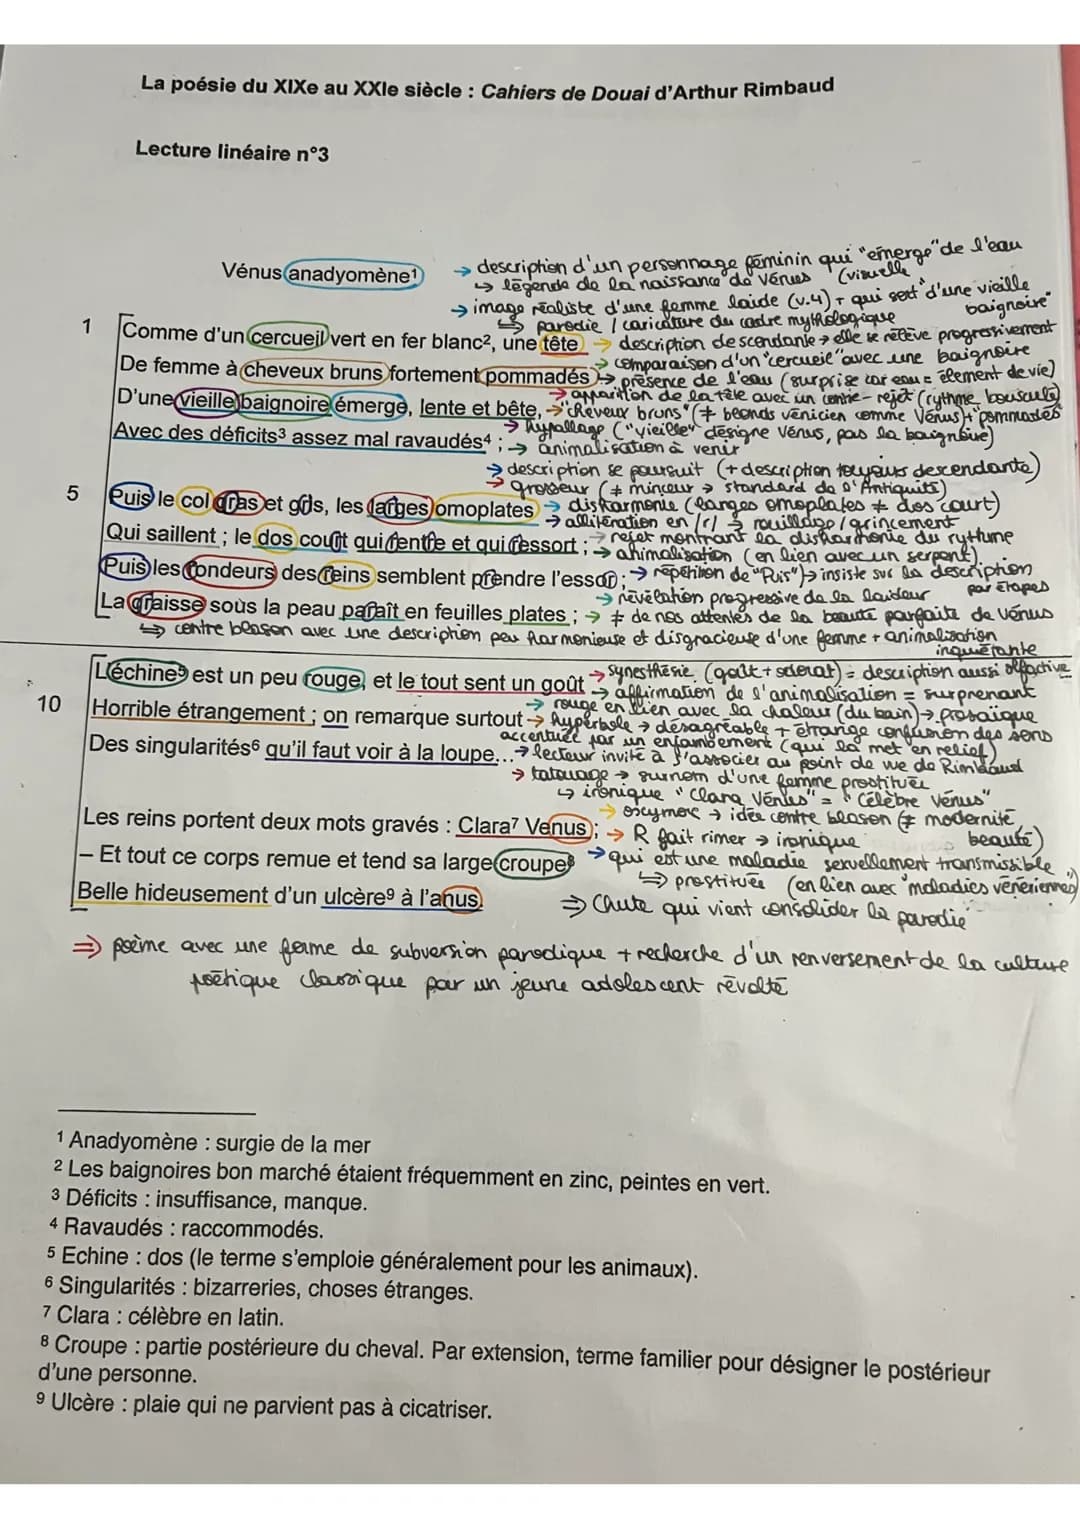 La poésie du XIXe au XXIe siècle : Cahiers de Douai d'Arthur Rimbaud
Lecture linéaire n°3
Vénus anadyomène¹
→ description d'un personnage féminin qui "émerge" de l'eau
↳ légende de la naissance de Vénus (visuelle
→ image réaliste d'une femme laide (v.4) + qui sort "d'une vieille baignoire"
↳ parodie / caricature du cadre mythologique
1 Comme d'un cercueil vert en fer blanc², une tête → description descendante → elle se relève progressivement
→ comparaison d'un "cercueil" avec une baignoire
De femme à cheveux bruns fortement pommadés → présence de l'eau (surprise car eau = élément de vie)
→ apparition de la tête avec un contre-rejet (rythme bousculé)
D'une vieille baignoire émerge, lente et bête, → "cheveux bruns" (≠ blonds vénicien comme Vénus) + "pommadés"
→ hypallage ("vieille" désigne Vénus, pas la baignoire)
Avec des déficits³ assez mal ravaudés⁴ ; → animalisation à venir
→ description se poursuit (+ description toujours descendante)
→ grosseur (≠ minceur → standard de l'Antiquité)
5 Puis le col gras et gris, les larges omoplates → disharmonie (larges omoplates ≠ dos court)
→ allitération en /r/ → rouillage / grincement
Qui saillent ; le dos court qui rentre et qui ressort ; → rejet montrant la disharmonie du rythme
→ animalisation (en lien avec un serpent)
Puis les rondeurs des reins semblent prendre l'essor ; → répétition de "Puis") → insiste sur la description par étapes
→ révélation progressive de la laideur
La graisse sous la peau paraît en feuilles plates ; → ≠ de nos attentes de la beauté parfaite de Vénus
↳ contre blason avec une description peu harmonieuse et disgracieuse d'une femme + animalisation inquiétante
L'échine⁵ est un peu rouge, et le tout sent un goût → synesthésie (goût + odorat) = description aussi olfactive
→ affirmation de l'animalisation = surprenant
→ rouge en lien avec la chaleur (du bain) → prosaïque
10 Horrible étrangement ; on remarque surtout → hyperbole → désagréable + étrange confusion des sens
accentuée par un enjambement (qui la met en relief)
Des singularités⁶ qu'il faut voir à la loupe... → lecteur invité à s'associer au point de vue de Rimbaud
→ tatouage → surnom d'une femme prostituée
↳ ironique "Clara Vénus" = "Célèbre Vénus"
→ oxymore → idée contre blason (≠ modernité beauté)
Les reins portent deux mots gravés : Clara⁷ Venus ; → R fait rimer → ironique
– Et tout ce corps remue et tend sa large croupe⁸ → qui est une maladie sexuellement transmissible
↳ prostituée (en lien avec "maladies vénériennes")
Belle hideusement d'un ulcère⁹ à l'anus. ⇒ Chute qui vient consolider la parodie
⇒ poème avec une forme de subversion parodique + recherche d'un renversement de la culture
poétique classique par un jeune adolescent révolté
¹ Anadyomène : surgie de la mer
² Les baignoires bon marché étaient fréquemment en zinc, peintes en vert.
³ Déficits : insuffisance, manque.
⁴ Ravaudés : raccommodés.
⁵ Echine : dos (le terme s'emploie généralement pour les animaux).
⁶ Singularités : bizarreries, choses étranges.
⁷ Clara : célèbre en latin.
⁸ Croupe : partie postérieure du cheval. Par extension, terme familier pour désigner le postérieur
d'une personne.
⁹ Ulcère : plaie qui ne parvient pas à cicatriser.